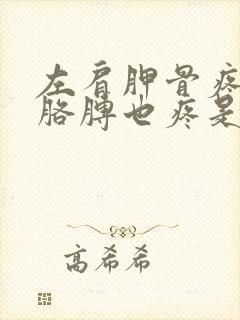 左肩胛骨疼
胳膊也疼是
高希希